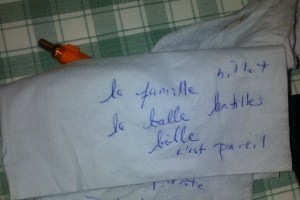 la famille billet
la balle batilles
bille
c'est pareil